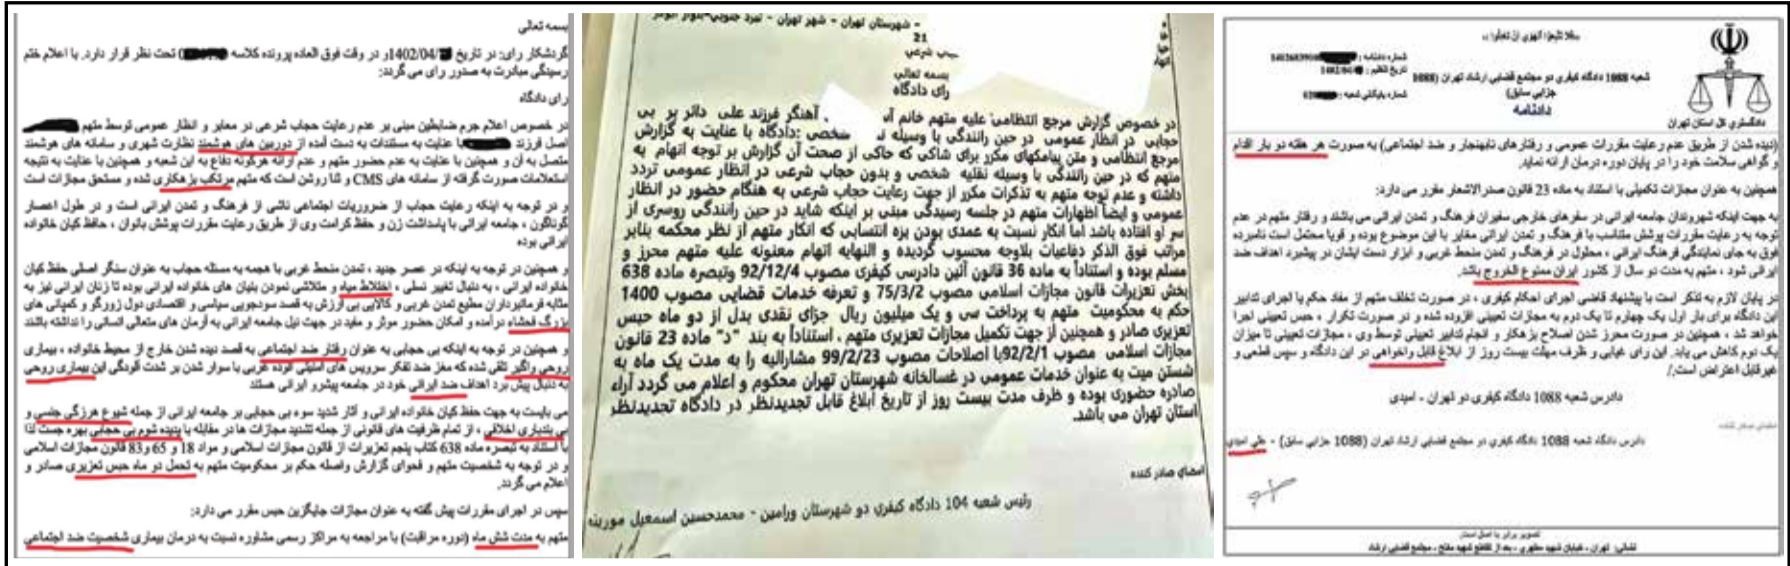 بسمه تعالی
گردشکار رای: در تاریخ 1402/04/ و در وقت فوق العاده پرونده کلاسه تحت نظر قرار دارد. با اعلام ختم
رسیدگی مبادرت به صدور رای می گردند:
رای دادگاه
در خصوص اعلام جرم ضابطین مبنی بر عدم رعایت حجاب شرعی در معابر و انظار عمومی توسط متهم
اصل فرزند با عنایت به مستندات به دست آمده از دوربین های هوشمند نظارت شهری و سامانه های هوشمند
متصل به آن و همچنین با عنایت به عدم حضور متهم و عدم ارائه هرگونه دفاع به این شعبه و همچنین با عنایت به نتیجه
استعلامات صورت گرفته از سامانه های CMS و ثنا روشن است که متهم مرتکب بزهکاری شده و مستحق مجازات است
و در توجه به اینکه رعایت حجاب از ضروریات اجتماعی ناشی از فرهنگ و تمدن ایرانی است و در طول اعصار
گوناگون ، جامعه ایرانی با پاسداشت زن و حفظ کرامت وی از طریق رعایت مقررات پوشش بانوان ، حافظ کیان خانواده
ایرانی بوده
و همچنین در توجه به اینکه در عصر جدید ، تمدن منحط غربی با هجمه به مسئله حجاب به عنوان سنگر اصلی حفظ کیان
خانواده ایرانی ، به دنبال تغییر نسلی ، اختلاط میاه و متلاشی نمودن بنیان های خانواده ایرانی بوده تا زنان ایرانی نیز به
مثابه فرمانبرداران مطیع تمدن غربی و کالایی بی ارزش به قصد سودجویی سیاسی و اقتصادی دول زورگو و کمپانی های
بزرگ فحشاء درآمده و امکان حضور موثر و مفید در جهت نیل جامعه ایرانی به آرمان های متعالی انسانی را نداشته باشند
و همچنین در توجه به اینکه بی حجابی به عنوان رفتار ضد اجتماعی به قصد دیده شدن خارج از محیط خانواده ، بیماری
روحی واگیر تلقی شده که مغز ضد تفکر سرویس های امنیتی آلوده غربی با سوار شدن بر شدت آلودگی این بیماری روحی
به دنبال پیش برد اهداف ضد ایرانی خود در جامعه پیشرو ایرانی هستند
می بایست به جهت حفظ کیان خانواده ایرانی و آثار شدید سوء بی حجابی بر جامعه ایرانی از جمله شیوع هرزگی جنسی و
بی بندباری اخلاقی ، از تمام ظرفیت های قانونی از جمله تشدید مجازات ها در مقابله با پدیده شوم بی حجابی بهره جست لذا
با استناد به تبصره ماده 638 کتاب پنجم تعزیرات از قانون مجازات اسلامی و مواد 18 و 65 و 83 قانون مجازات اسلامی
و در توجه به شخصیت متهم و فحوای گزارش واصله حکم بر محکومیت متهم به تحمل دو ماه حبس تعزیری صادر و
اعلام می گردد.
سپس در اجرای مقررات پیش گفته به عنوان مجازات جایگزین حبس مقرر می دارد:
متهم به مدت شش ماه (دوره مراقبت) با مراجعه به مراکز رسمی مشاوره نسبت به درمان بیماری شخصیت ضد اجتماعی
- شهرستان تهران - شهر تهران - نبرد جنوبی-بلوار ابوذر
21
شرعی
بسمه تعالی
رای دادگاه
در خصوص گزارش مرجع انتظامی علیه متهم خانم آهنگر فرزند علی دائر بر بی
حجابی در انظار عمومی در حین رانندگی با وسیله شخصی :دادگاه با عنایت به گزارش
مرجع انتظامی و متن پیامکهای مکرر برای شاکی که حاکی از صحت آن گزارش بر توجه اتهام به
متهم که در حین رانندگی با وسیله نقلیه شخصی و بدون حجاب شرعی در انظار عمومی تردد
داشته و عدم توجه متهم به تذکرات مکرر از جهت رعایت حجاب شرعی به هنگام حضور در انظار
عمومی و ایضاً اظهارات متهم در جلسه رسیدگی مبنی بر اینکه شاید در حین رانندگی روسری از
سر او افتاده باشد اما انکار نسبت به عمدی بودن بزه انتسابی که انکار متهم از نظر محکمه بنابر
مراتب فوق الذکر دفاعیات بلاوجه محسوب گردیده و النهایه اتهام معنونه علیه متهم محرز و
مسلم بوده و استناداً به ماده 36 قانون آئین دادرسی کیفری مصوب 92/12/4 وتبصره ماده 638
بخش تعزیرات قانون مجازات اسلامی مصوب 75/3/2 و تعرفه خدمات قضایی مصوب 1400
حکم به محکومیت متهم به پرداخت سی و یک میلیون ریال جزای نقدی بدل از دو ماه حبس
تعزیری صادر و همچنین از جهت تکمیل مجازات تعزیری متهم ، استناداً به بند "د" ماده 23 قانون
مجازات اسلامی مصوب 92/2/1با اصلاحات مصوب 99/2/23 مشارالیه را به مدت یک ماه به
شستن میت به عنوان خدمات عمومی در غسالخانه شهرستان تهران محکوم و اعلام می گردد آراء
صادره حضوری بوده و ظرف مدت بیست روز از تاریخ ابلاغ قابل تجدیدنظر در دادگاه تجدیدنظر
استان تهران می باشد.
امضای صادر کننده
رئیس شعبه 104 دادگاه کیفری دو شهرستان ورامین - محمدحسین اسمعیل مورینه
شماره دادنامه :
تاریخ تنظیم :
شعبه 1088 دادگاه کیفری دو مجتمع قضایی ارشاد تهران (1088
جزایی سابق)
شماره بایگانی شعبه :
دادنامه
دادگستری کل استان تهران
(دیده شدن از طریق عدم رعایت مقررات عمومی و رفتارهای نابهنجار و ضد اجتماعی) به صورت هر هفته دو بار اقدام
و گواهی سلامت خود را در پایان دوره درمان ارائه نماید.
همچنین به عنوان مجازات تکمیلی با استناد به ماده 23 قانون صدرالاشعار مقرر می دارد:
به جهت اینکه شهروندان جامعه ایرانی در سفرهای خارجی سفیران فرهنگ و تمدن ایرانی می باشند و رفتار متهم در عدم
توجه به رعایت مقررات پوشش متناسب با فرهنگ و تمدن ایرانی مغایر با این موضوع بوده و قویا محتمل است نامبرده
فوق به جای نمایندگی فرهنگ ایرانی ، محلول در فرهنگ و تمدن منحط غربی و ابزار دست ایشان در پیشبرد اهداف ضد
ایرانی شود ، متهم به مدت دو سال از کشور ایران ممنوع الخروج باشد.
در پایان لازم به تذکر است با پیشنهاد قاضی اجرای احکام کیفری ، در صورت تخلف متهم از مفاد حکم یا اجرای تدابیر
این دادگاه برای بار اول یک چهارم تا یک دوم به مجازات تعیینی افزوده شده و در صورت تکرار ، حبس تعیینی اجرا
خواهد شد ، همچنین در صورت محرز شدن اصلاح بزهکار و انجام تدابیر تعیینی توسط وی ، مجازات تعیینی تا میزان
یک دوم کاهش می یابد. این رای غیابی و ظرف مهلت بیست روز از ابلاغ قابل واخواهی در این دادگاه و سپس قطعی و
غیرقابل اعتراض است./
دادرس شعبه 1088 دادگاه کیفری دو تهران - امیدی
امضای صادر کننده
دادرس دادگاه شعبه 1088 دادگاه کیفری دو مجتمع قضایی ارشاد تهران (1088 جزایی سابق) - علی امیدی
تصویر برابر با اصل است.
نشانی: تهران ، خیابان شهید مطهری ، بعد از تقاطع شهید مفتح ، مجتمع قضایی ارشاد